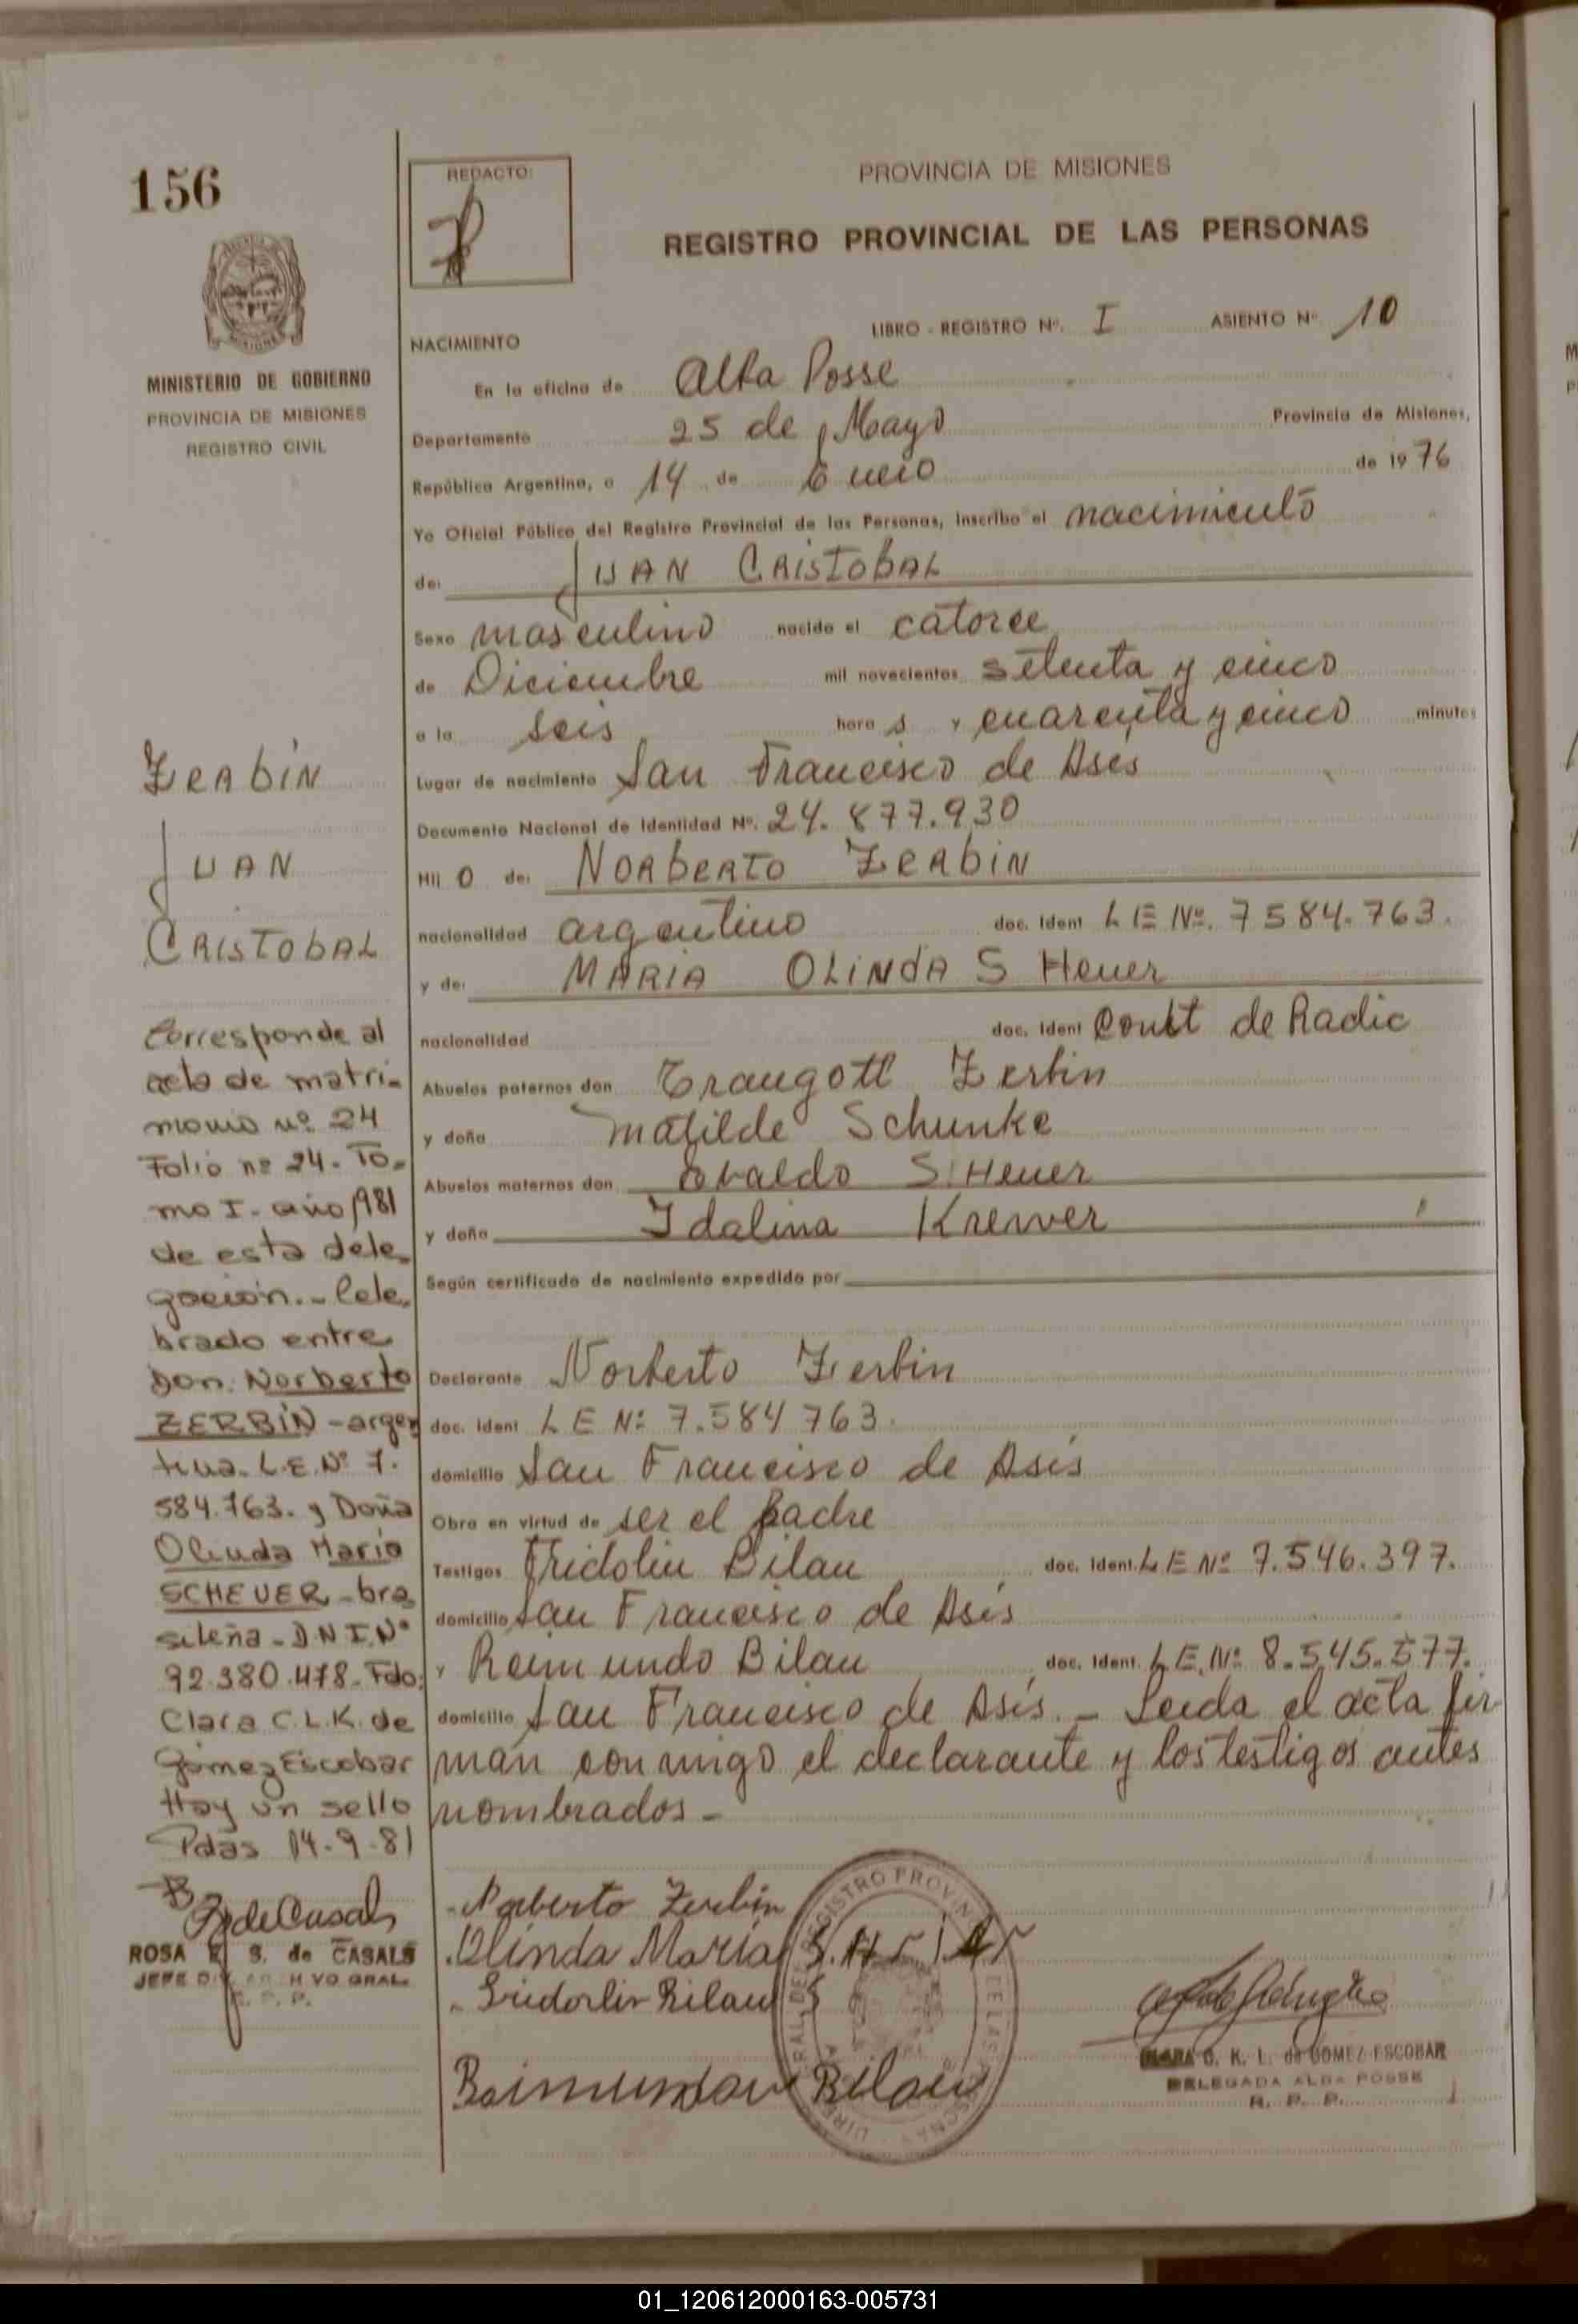 156
REDACTO:
PROVINCIA DE MISIONES
REGISTRO PROVINCIAL DE LAS PERSONAS
MINISTERIO DE GOBIERNO
PROVINCIA DE MISIONES
REGISTRO CIVIL
LIBRO - REGISTRO Nº. I ASIENTO Nº 10
NACIMIENTO
En la oficina de Alba Posse
Departamento 25 de Mayo Provincia de Misiones,
República Argentina, a 14 de Enero de 1976
Yo Oficial Público del Registro Provincial de las Personas, inscribo el nacimiento
de: JUAN CRISTOBAL
Sexo masculino nacido el catorce
de Diciembre mil novecientos setenta y cinco
a la seis hora s y cuarenta y cinco minutos
Lugar de nacimiento San Francisco de Asís
Documento Nacional de Identidad Nº. 24.877.930
Hij o de: NORBERTO ZERBIN
nacionalidad argentino doc. Ident LE Nº. 7584.763.
y de: MARIA OLINDA S Heuer
nacionalidad doc. Ident Const de Radic
Abuelos paternos don Traugott Zerbin
y doña Matilde Schunke
Abuelos maternos don Obaldo S.Heuer
y doña Idalina Krewer
Según certificado de nacimiento expedido por
Declarante Norberto Zerbin
doc. Ident LE Nº 7.584 763.
domicilio San Francisco de Asís
Obra en virtud de ser el padre
Testigos Fridolin Bilau doc. Ident. LE Nº 7.546.397.
domicilio San Francisco de Asís
y Reimundo Bilau doc. Ident. LE. Nº 8.545.577.
domicilio San Francisco de Asís. - Leida el acta fir-
man conmigo el declarante y los testigos antes
nombrados -
Norberto Zerbin
Olinda Maria
Fridolin Bilau
Raimundo Bilau
CLARA C. K. L. de GOMEZ ESCOBAR
DELEGADA ALBA POSSE
R. P. P.
ZERBIN
JUAN
CRISTOBAL
Corresponde al
acta de matri-
monio nº 24
Folio nº 24. To-
mo I. año 1981
de esta dele-
gación.- Cele-
brado entre
Don. Norberto
ZERBÍN - argen
tina. L.E. Nº 7.
584.763. y Doña
Olinda Maria
SCHEUER - bra
sileña - D.N.I. Nº
92.380.478. Fdo:
Clara C.L.K. de
Gómez Escobar
Hay un sello
Pdas 14-9-81
ROSA E. S. de CASALS
JEFE DIV. ARCHIVO GRAL.
R. P. P.
01_120612000163-005731